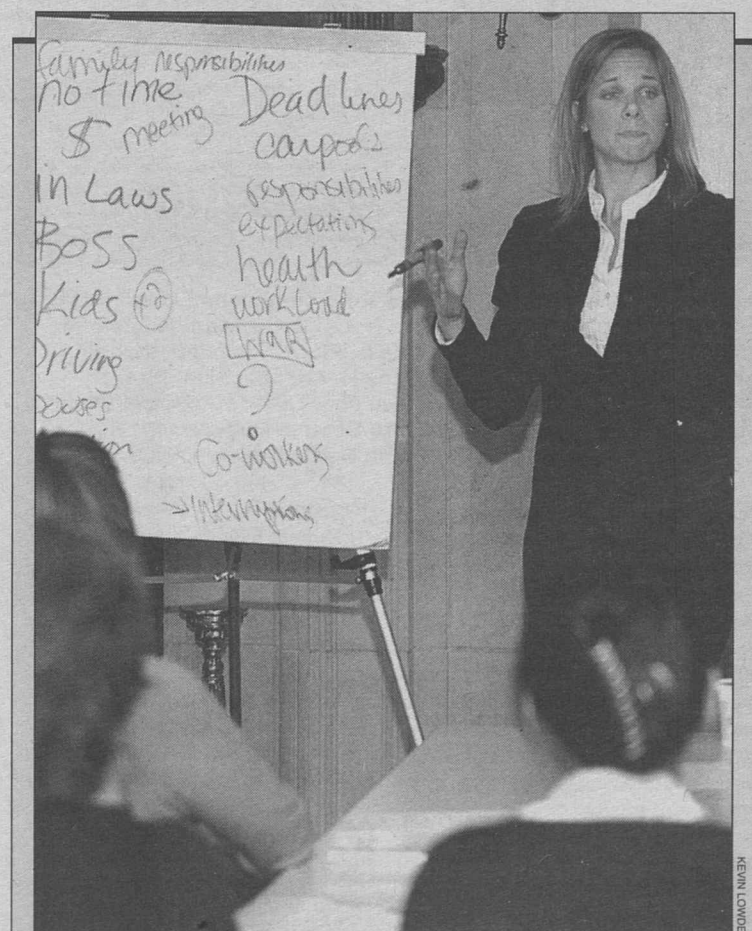 family responsibilities
no time
$ meeting
in Laws
Boss
Kids
Driving
Deadlines
carpools
responsibilities
expectations
health
workload
WAR
?
Co-workers
→ Interruptions
KEVIN LOWDE